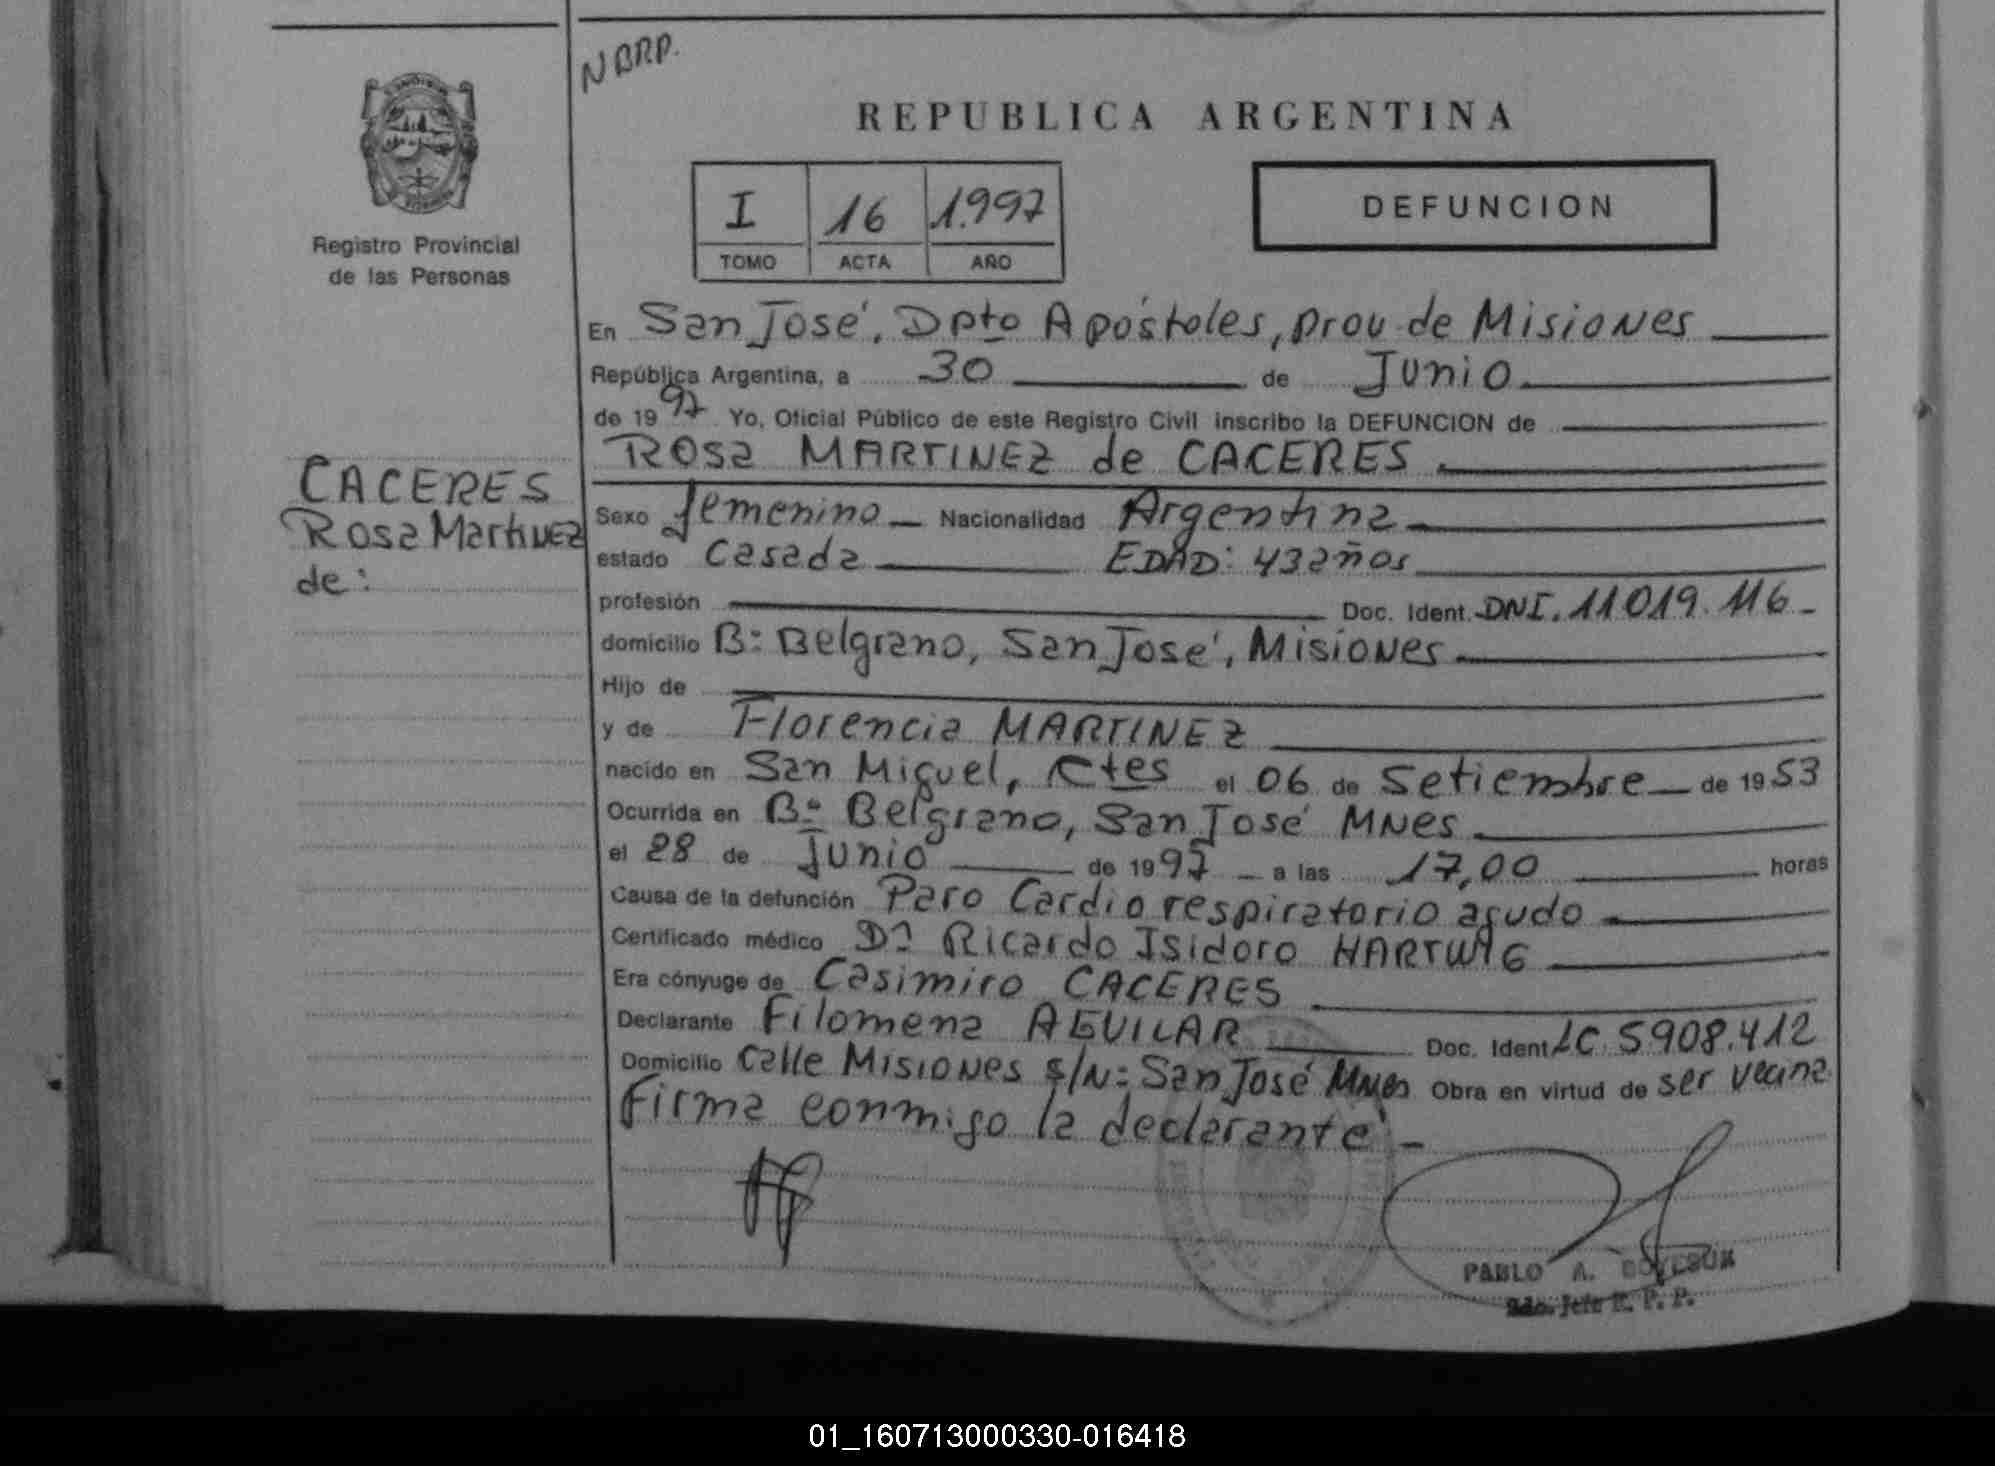 NBRP.
REPUBLICA ARGENTINA
I 16 1.997
TOMO ACTA AÑO
DEFUNCION
Registro Provincial
de las Personas
En San José, Dpto Apóstoles, prov de Misiones
República Argentina, a 30 de Junio
de 1997 Yo, Oficial Público de este Registro Civil inscribo la DEFUNCION de
Rosa MARTINEZ de CACERES
CACERES
Rosa Martinez
de:
Sexo femenino Nacionalidad Argentina
estado casada EDAD: 43 años
profesión Doc. Ident. DNI. 11019.116
domicilio B: Belgrano, San José, Misiones
Hijo de
y de Florencia MARTINEZ
nacido en San Miguel, Ctes el 06 de Setiembre de 1953
Ocurrida en Bº Belgrano, San José MNes
el 28 de Junio de 1997 a las 17,00 horas
Causa de la defunción Paro Cardio respiratorio agudo
Certificado médico Dr Ricardo Isidoro HARTWIG
Era cónyuge de Casimiro CACERES
Declarante Filomena AGUILAR Doc. Ident LC 5908.412
Domicilio Calle Misiones s/N: San José MNes Obra en virtud de ser vecina
Firma conmigo la declarante
PABLO A.
Jefe R. P. P.
01_160713000330-016418